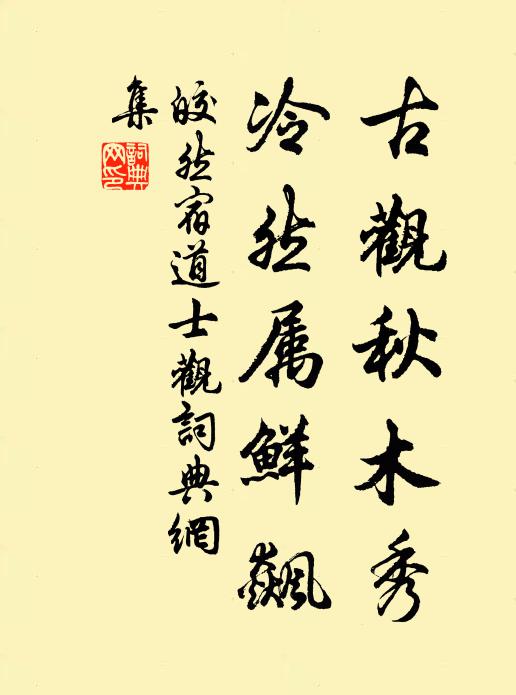 古觀秋木秀
冷然属鮮飆
皎然宿道士觀詞典網
集
詞典网印